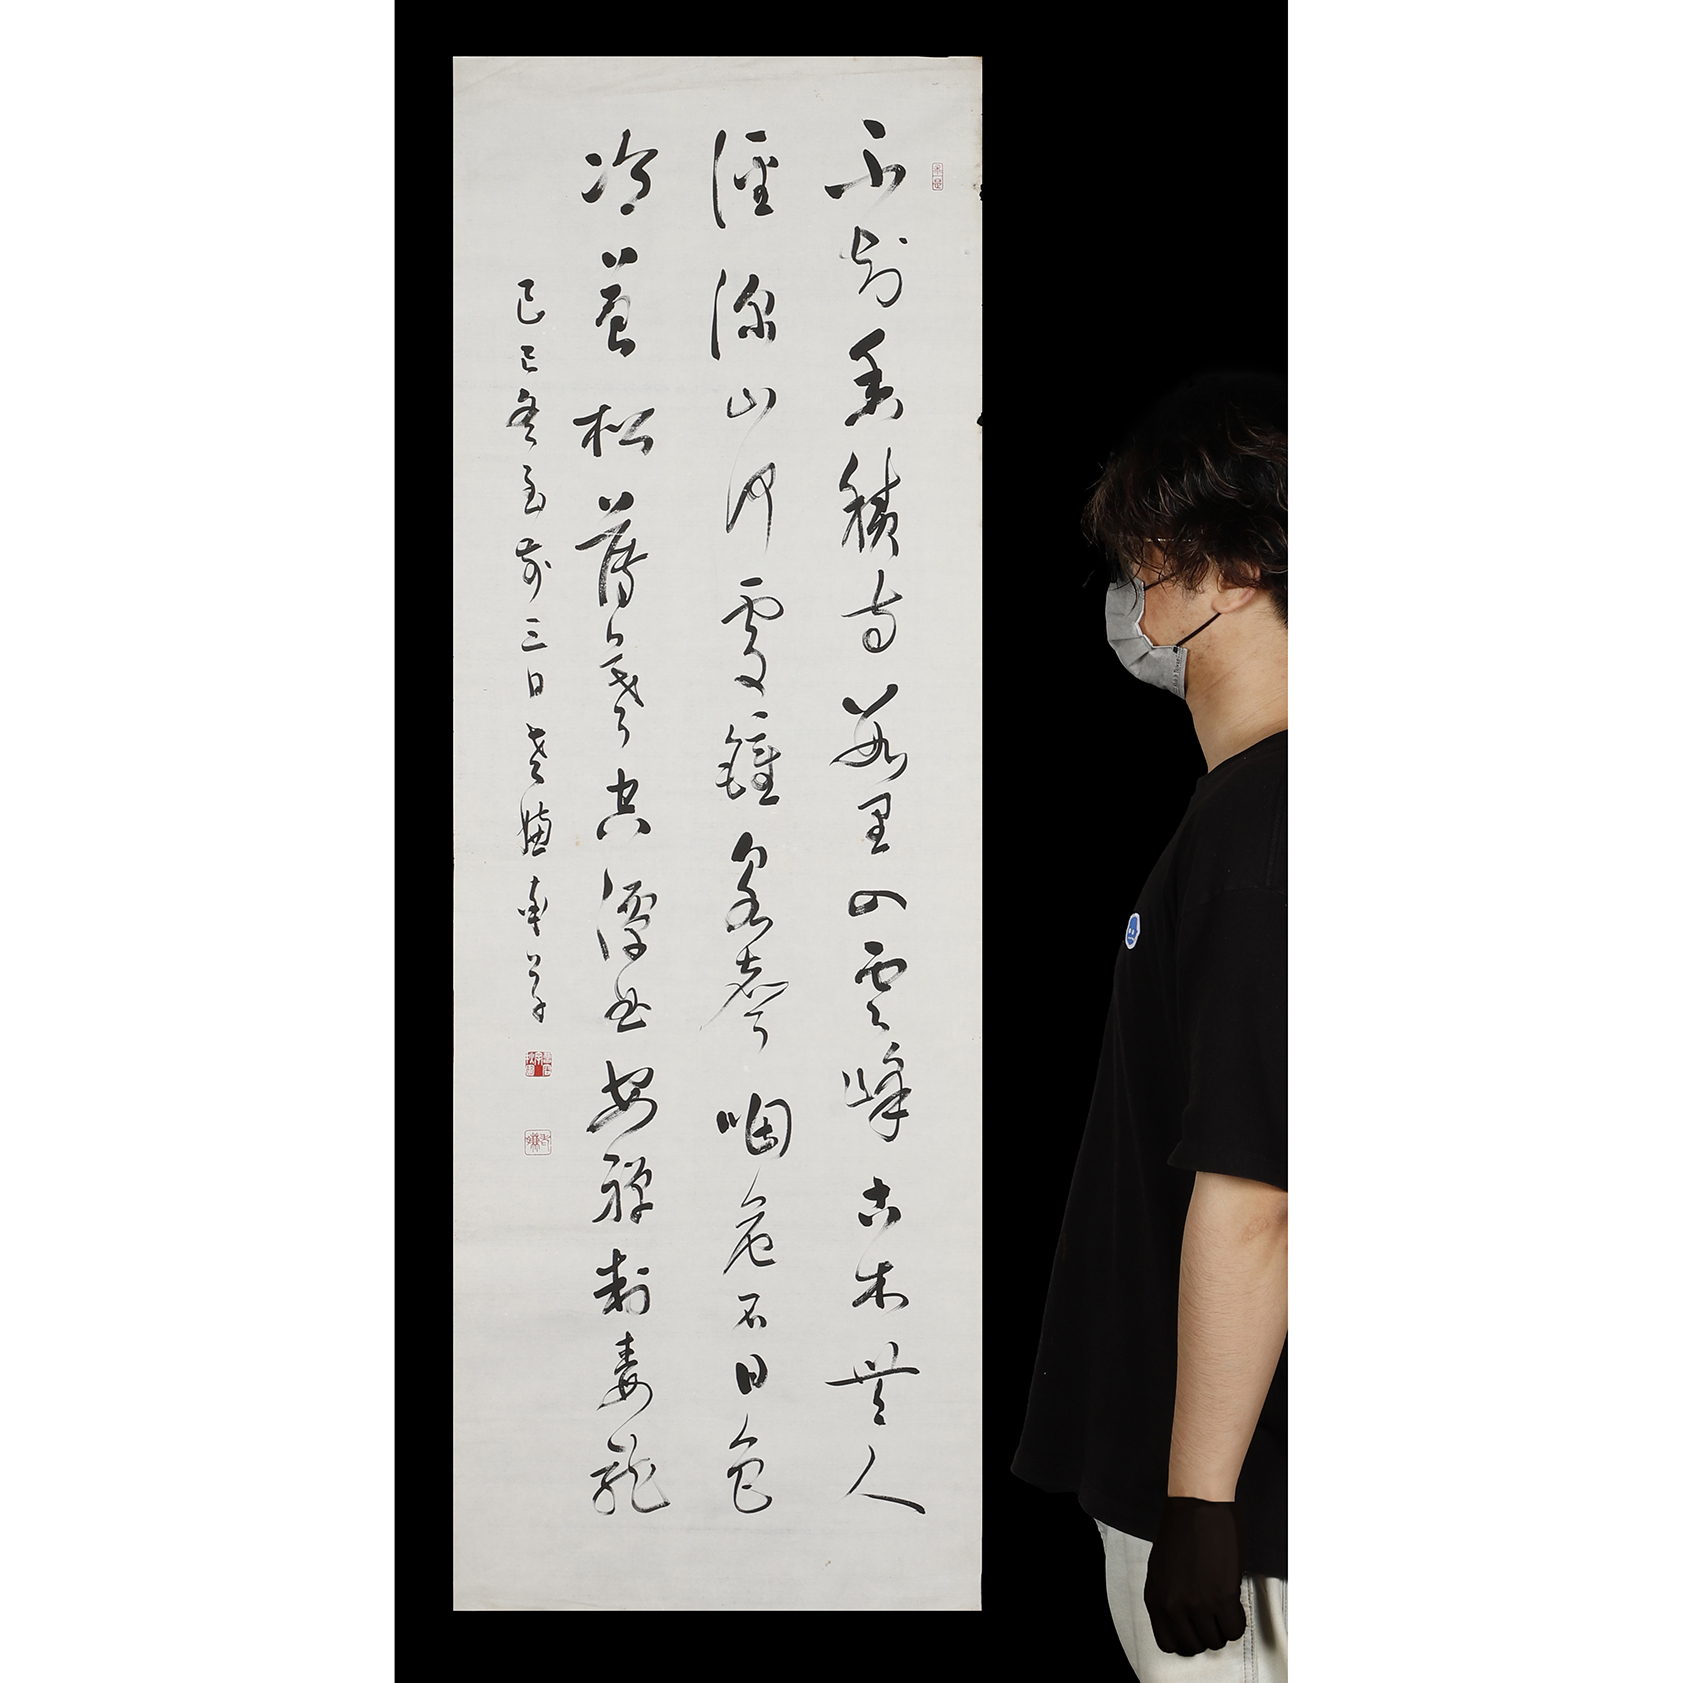 不知香積寺數里入雲峰古木無人
徑深山何處鐘泉聲咽危石日色
冷蒼松薄暮空潭曲安禪制毒龍
己巳冬至前三日老